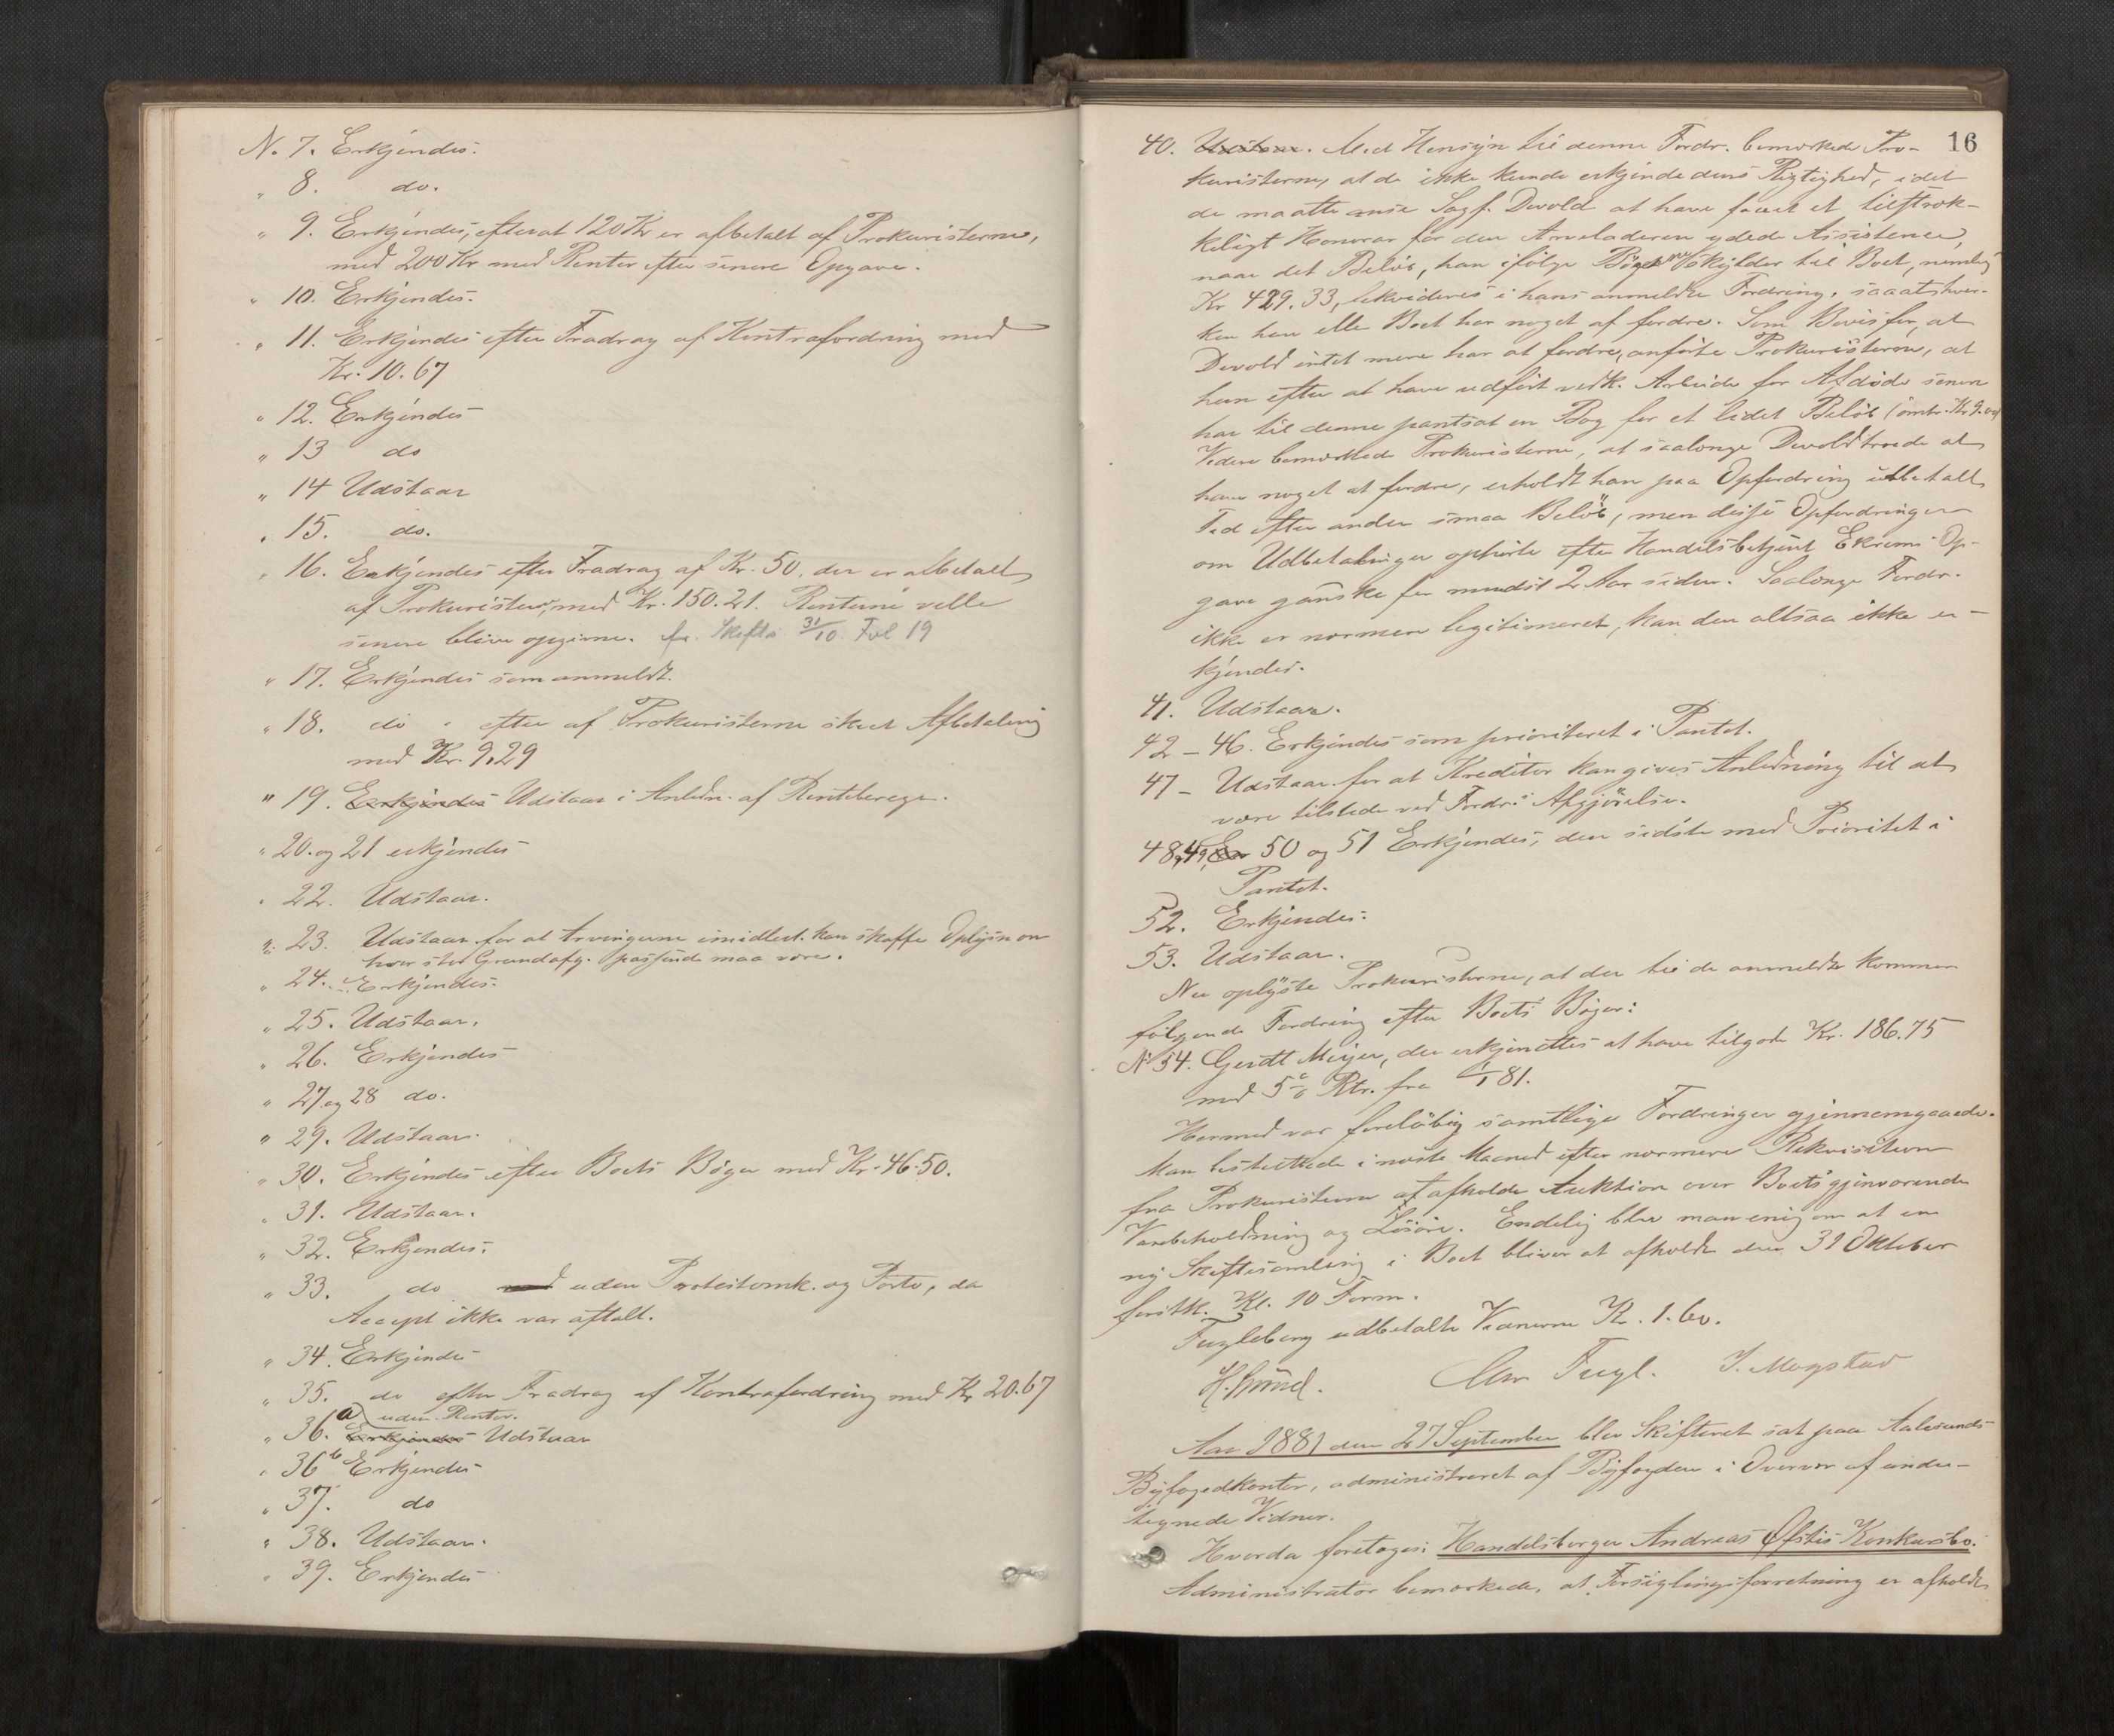 N. 7. Erkjendes.
" 8. do.
" 9. Erkjendes, efterat 120 Kr er afbetalt af Prokuristerne,
med 200 Kr med Renter efter senere Opgave.
" 10. Erkjendes.
" 11. Erkjendes efter Fradrag af Kontrafordring med
Kr. 10.67
" 12. Erkjendes
" 13 do
" 14 Udstaar
" 15. do.
" 16. Erkjendes efter Fradrag af Kr. 50, der er afbetalt
af Prokuristerne, med Kr. 150.21. Renterne ville
senere blive opgivne. fr. Skifts. 31/10 Fol 19
" 17. Erkjendes som anmeldt.
" 18. do - efter af Prokuristerne skeet Afbetaling
med Kr. 9.29
" 19. Erkjendes Udstaar i Anledn. af Renteberegn.
" 20. og 21 erkjendes
" 22. Udstaar.
" 23. Udstaar for at Arvingerne imidlert. kan skaffe Oplysn om
hvor stor Grundafg. passende maa være.
" 24. Erkjendes.
" 25. Udstaar.
" 26. Erkjendes
" 27 og 28 do.
" 29. Udstaar.
" 30. Erkjendes efter Boets Bøger med Kr. 46.50.
" 31. Udstaar.
" 32. Erkjendes.
" 33. do med uden Protestomk. og Porto, da
Accept ikke var aftalt.
" 34. Erkjendes
" 35. do efter Fradrag af Kontrafordring med Kr 20.67
uden Renter.
" 36. a) Erkjendes Udstaar
" 36 b Erkjendes
" 37. do
" 38. Udstaar.
" 39. Erkjendes
16
40. Udstaar. Med Hensyn til denne Fordr. bemærkede Pro-
kuristerne, at de ikke kunde erkjende dens Rigtighed, idet
de maatte anse Sagf. Devold at have faaet et tilstræk-
keligt Honorar for den Arveladeren ydede Assistence,
naar det Beløb, han ifølge Bøgerne skylder til Boet, nemlig
Kr 429.33, likvideres i hans anmeldte Fordring, saa at hver-
ken han eller Boet har noget at fordre. Som Bevis for, at
Devold intet mere har at fordre, anførte Prokuristerne, at
han efter at have udført vedk. Arbeide for Afdøde senere
har til denne pantsat en Bog for et lidet Beløb (omtr. Kr 9.00)
Videre bemærkede Prokuristerne, at saalænge Devold troede at
have noget at fordre, erholdt han paa Opfordring udbetalt
Tid efter anden smaa Beløb, men disse Opfordringer
om Udbetalinger ophørte efter Handelsbetjent Ekrems Op-
gave ganske for mindst 2 Aar siden. Saalænge Fordr.
ikke er nærmere legitimeret, kan den altsaa ikke er-
kjendes.
41. Udstaar.
42 - 46. Erkjendes som prioriteret i Pantet.
47 - Udstaar for at Kreditor kan gives Anledning til at
være tilstede ved Fordr.s Afgjørelse.
48, 49, 50 og 51 Erkjendes, den sidste med Prioritet i
Pantet.
52. Erkjendes.
53. Udstaar.
Nu oplyste Prokuristerne, at der til de anmeldte kommer
følgende Fordring efter Boets Bøger:
No 54. Gerdt Meyer, der erkjendtes at have tilgode Kr. 186.75
med 5 % Rtr. fra 1/1 81.
Hermed var foreløbig samtlige Fordringer gjennemgaaede.
Man besluttede i næste Maaned efter nærmere Rekvisition
fra Prokuristerne at afholde Auktion over Boets gjenværende
Varebeholdning og Løsøre. Endelig blev man enig om at en
ny Skiftesamling i Boet bliver at afholde den 31 Oktober
førstk. Kl. 10 Form.
Fugleberg udbetalte Vidnerne Kr. 1.60.
Chr Fugl. J. Magstad
Aar 1881 den 27 September blev Skifteret sat paa Aalesunds
Byfogedkontor, administreret af Byfogden i Overvær af under-
tegnede Vidner.
Hvorda foretoges: Handelsborger Andreas Ofstis Konkursbo.
Administrator bemærkede, at Forseglingsforretning er afholdt